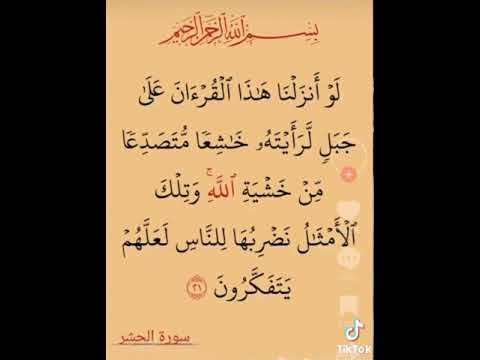 بِسْمِ اللَّهِ الرَّحْمَٰنِ الرَّحِيمِ
لَوْ أَنزَلْنَا هَٰذَا ٱلْقُرْءَانَ عَلَىٰ
جَبَلٍ لَّرَأَيْتَهُۥ خَٰشِعًا مُّتَصَدِّعًا
مِّنْ خَشْيَةِ ٱللَّهِ ۚ وَتِلْكَ
ٱلْأَمْثَٰلُ نَضْرِبُهَا لِلنَّاسِ لَعَلَّهُمْ
يَتَفَكَّرُونَ ٢١
سورة الحشر
TikTok